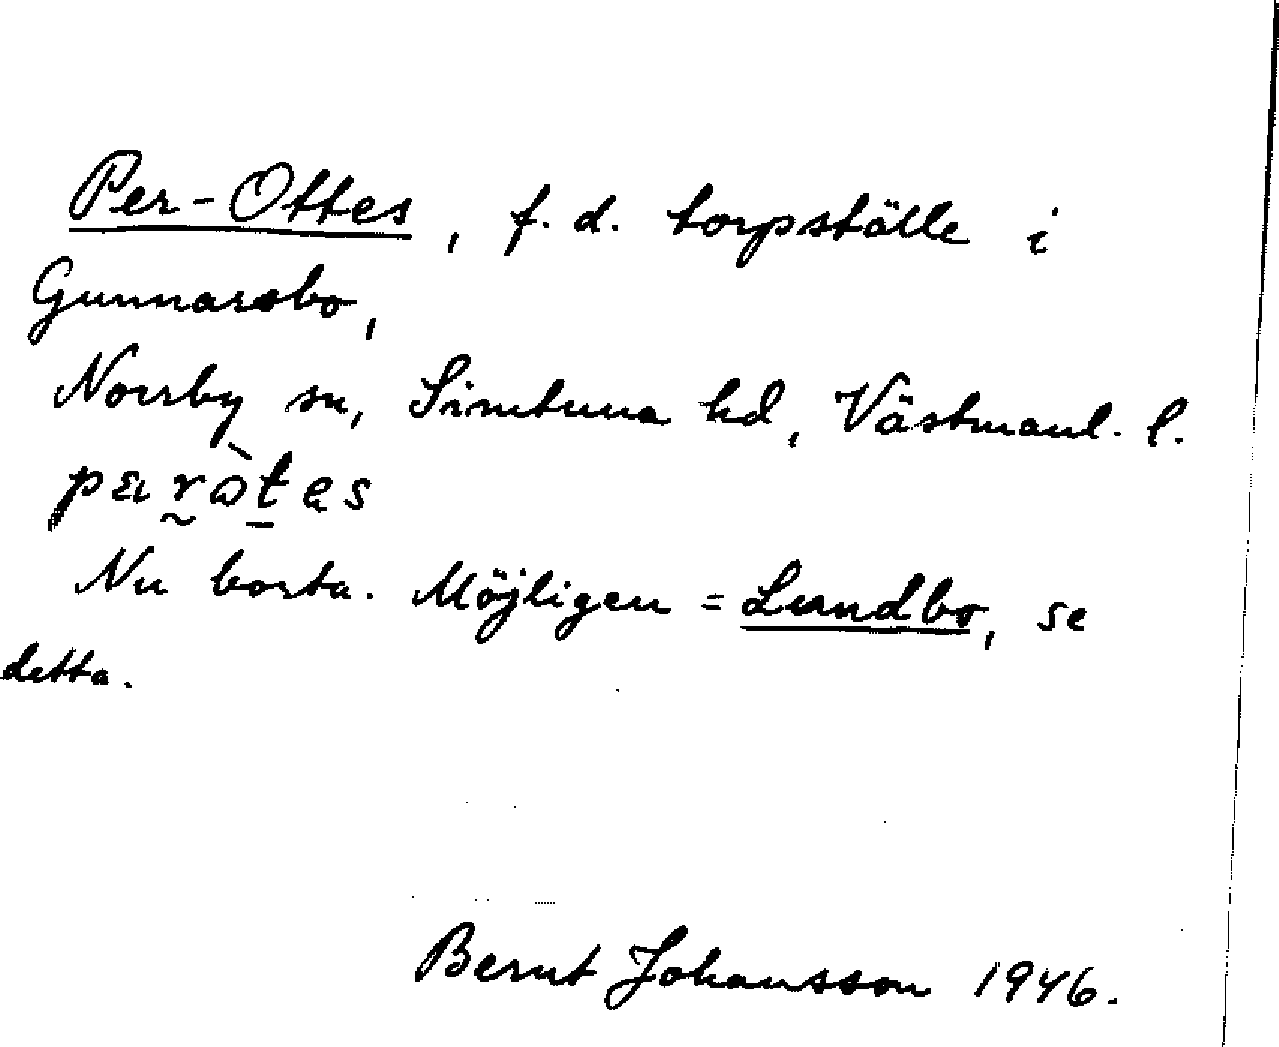 Per-Ottes, f. d. torpställe i
Gunnarsbo,
Norrby sn, Simtuna hd, Västmanl. l.
Nu borta. Möjligen = Lundbo, se
detta.
Bernt Johansson 1946.